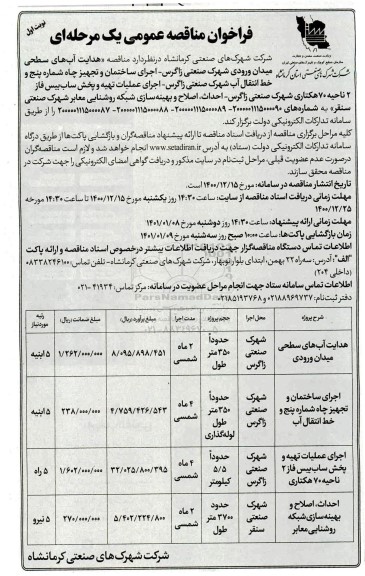 نوبت اول
فراخوان مناقصه عمومی یک مرحله‌ای
شرکت شهرک‌های صنعتی کرمانشاه درنظردارد مناقصه «هدایت آب‌های سطحی
میدان ورودی شهرک صنعتی زاگرس- اجرای ساختمان و تجهیز چاه شماره پنج و
خط انتقال آب شهرک صنعتی زاگرس- اجرای عملیات تهیه و پخش ساب‌بیس فاز
۲ ناحیه ۷۰هکتاری شهرک صنعتی زاگرس- احداث، اصلاح و بهینه‌سازی شبکه روشنایی معابر شهرک صنعتی
سنقر» به شماره‌های ۲۰۰۰۰۰۱۱۱۵۰۰۰۰۹۰- ۲۰۰۰۰۰۱۱۱۵۰۰۰۰۸۹- ۲۰۰۰۰۰۱۱۱۵۰۰۰۰۸۸- ۲۰۰۰۰۰۱۱۱۵۰۰۰۰۸۷ را از طریق
سامانه تدارکات الکترونیکی دولت برگزار کند.
کلیه مراحل برگزاری مناقصه از دریافت اسناد مناقصه تا ارائه پیشنهاد مناقصه‌گران و بازگشایی پاکت‌ها از طریق درگاه
سامانه تدارکات الکترونیکی دولت (ستاد) به آدرس www.setadiran.ir انجام خواهد شد و لازم است مناقصه‌گران
درصورت عدم عضویت قبلی، مراحل ثبت‌نام در سایت مذکور و دریافت گواهی امضای الکترونیکی را جهت شرکت در
مناقصه محقق سازند.
تاریخ انتشار مناقصه در سامانه: مورخ ۱۴۰۰/۱۲/۱۵ است.
مهلت زمانی دریافت اسناد مناقصه از سایت: ساعت ۱۴:۳۰ روز یکشنبه مورخ ۱۴۰۰/۱۲/۱۵ تا ساعت ۱۴:۳۰ مورخه
۱۴۰۰/۱۲/۲۵
مهلت زمانی ارائه پیشنهاد: ساعت ۱۴:۳۰ روز دوشنبه مورخ ۱۴۰۱/۰۱/۰۸
زمان بازگشایی پاکت‌ها: ساعت ۱۰:۰۰ صبح روز سه‌شنبه مورخ ۱۴۰۱/۰۱/۰۹
اطلاعات تماس دستگاه مناقصه‌گزار جهت دریافت اطلاعات بیشتر درخصوص اسناد مناقصه و ارائه پاکت
"الف": آدرس: سه‌راه ۲۲ بهمن، ابتدای بلوار نوبهار، شرکت شهرک های صنعتی کرمانشاه- تلفن تماس: ۰۸۳۳۸۲۴۶۱۰۰
(داخلی ۲۰۴)
اطلاعات تماس سامانه ستاد جهت انجام مراحل عضویت در سامانه: مرکز تماس: ۴۱۹۳۴-۰۲۱
دفتر ثبت‌نام: ۰۲۱۸۸۹۶۹۷۳۷ و ۰۲۱۸۵۱۹۳۷۶۸
شرح پروژه محل اجرا حجم پروژه مدت اجرا مبلغ برآورد (ریال) مبلغ ضمانت (ریال) رتبه موردنیاز
هدایت آب‌های سطحی میدان ورودی شهرک صنعتی زاگرس حدوداً ۳۵۰متر طول ۲ ماه شمسی ۸/۰۹۵/۸۹۸/۴۵۱ ۱/۲۶۲/۰۰۰/۰۰۰ ۵ ابنیه
اجرای ساختمان و تجهیز چاه شماره پنج و خط انتقال آب شهرک صنعتی زاگرس حدوداً ۳۵۰متر طول لوله‌گذاری ۴ ماه شمسی ۴/۷۵۹/۴۲۶/۵۴۳ ۲۳۸/۰۰۰/۰۰۰ ۵ ابنیه
اجرای عملیات تهیه و پخش ساب‌بیس فاز ۲ ناحیه ۷۰ هکتاری شهرک صنعتی زاگرس حدوداً ۵/۵ کیلومتر ۴ ماه شمسی ۳۲/۰۲۵/۸۰۰/۳۹۵ ۱/۶۰۲/۰۰۰/۰۰۰ ۵ راه
احداث، اصلاح و بهینه‌سازی شبکه روشنایی معابر شهرک صنعتی سنقر حدود ۳۷۰۰ متر طول ۲ ماه شمسی ۵/۴۰۲/۲۲۴/۸۰۰ ۲۷۰/۰۰۰/۰۰۰ ۵ نیرو
شرکت شهرک‌های صنعتی کرمانشاه